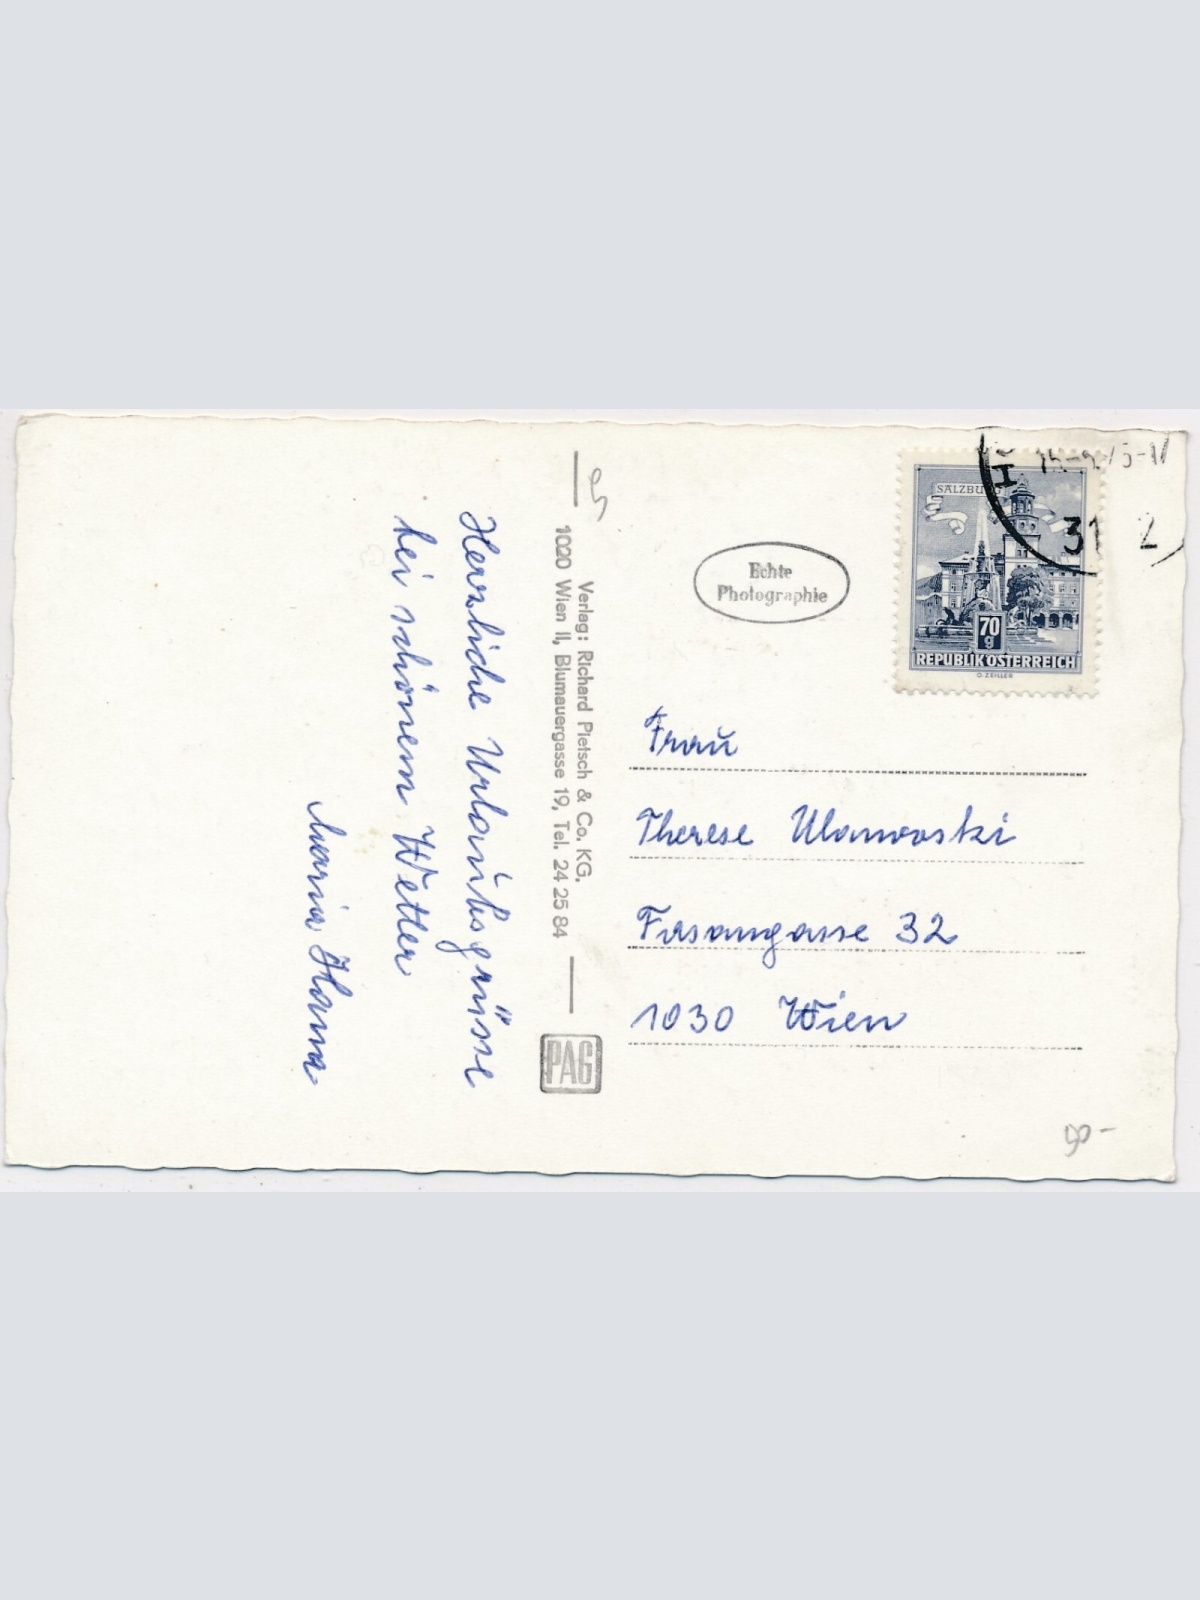 Herzliche Urlaubsgrüsse
bei schönem Wetter
Maria Hana
Verlag: Richard Pietsch & Co. KG,
1020 Wien II, Blumauergasse 19, Tel. 24 25 84
PAG
Echte
Photographie
SALZBURG
70
g
REPUBLIK ÖSTERREICH
O. ZEILLER
31 2
Frau
Therese Ulanowski
Fasangasse 32
1030 Wien
90-